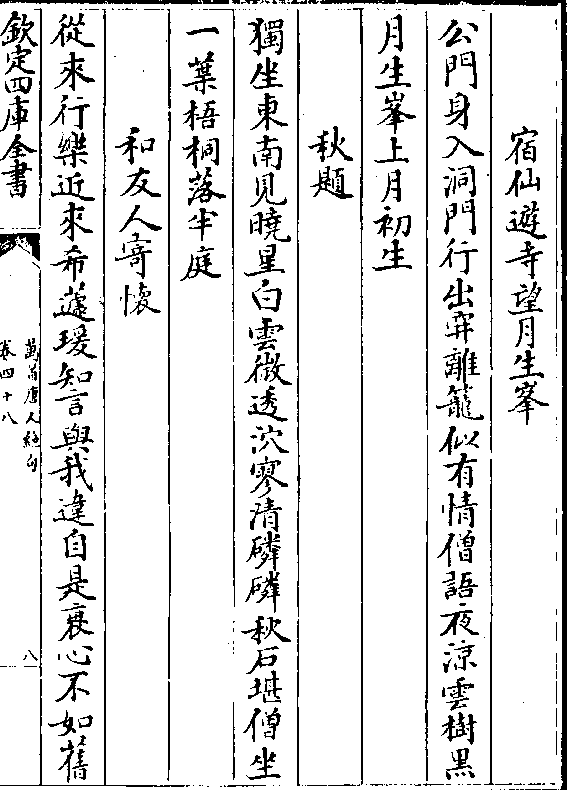 宿仙遊寺望月生峯
公門身入洞門行出穽離籠似有情僧語夜涼雲樹黒
月生峯上月初生
秋題
獨坐東南見曉星白雲微透泬寥清磷磷秋石堪僧坐
一葉梧桐落半庭
和友人寄懐
從來行樂近來希蘧瑗知言與我違自是衰心不如舊
欽定四庫全書
萬首唐人絶句
卷四十八
八